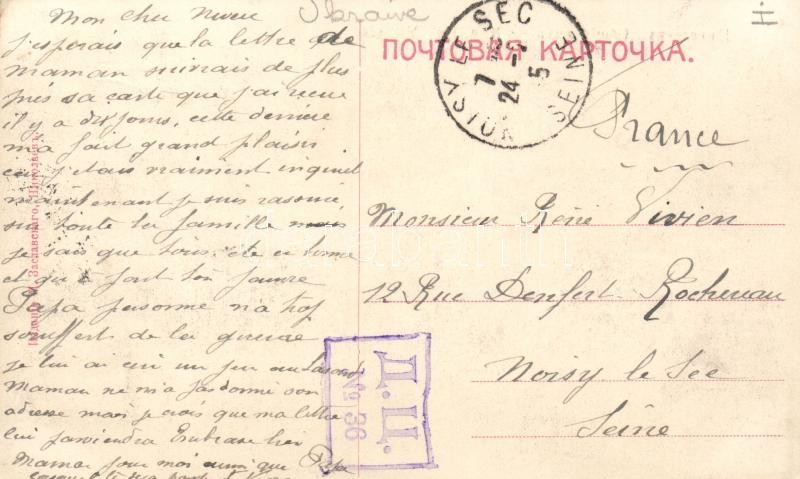 Mon cher Neveu
j'esperais que la lettre de
maman suivrais de plus
près sa carte que j'ai recue
il y a dix jours, cette dernière
m'a fait grand plaisir
car j'etais vraiment inquiet
maintenant je suis rassuré
sur toute la famille
je sais que tous
et que
Papa personne n'a trop
souffert de la guerre
je lui ai ecri un peu au hasard
Maman ne m'a pas donné son
adresse mais je crois que ma lettre
lui parviendra Embrasse bien
Maman pour moi ainsi que Papa
Ukraine
ПОЧТОВАЯ КАРТОЧКА.
NOISY LE SEC
SEINE
7
24 - 9
5
France
Monsieur Réné Vivien
12 Rue Denfert-Rochereau
Noisy le Sec
Seine
Д.Ц.
№ 36